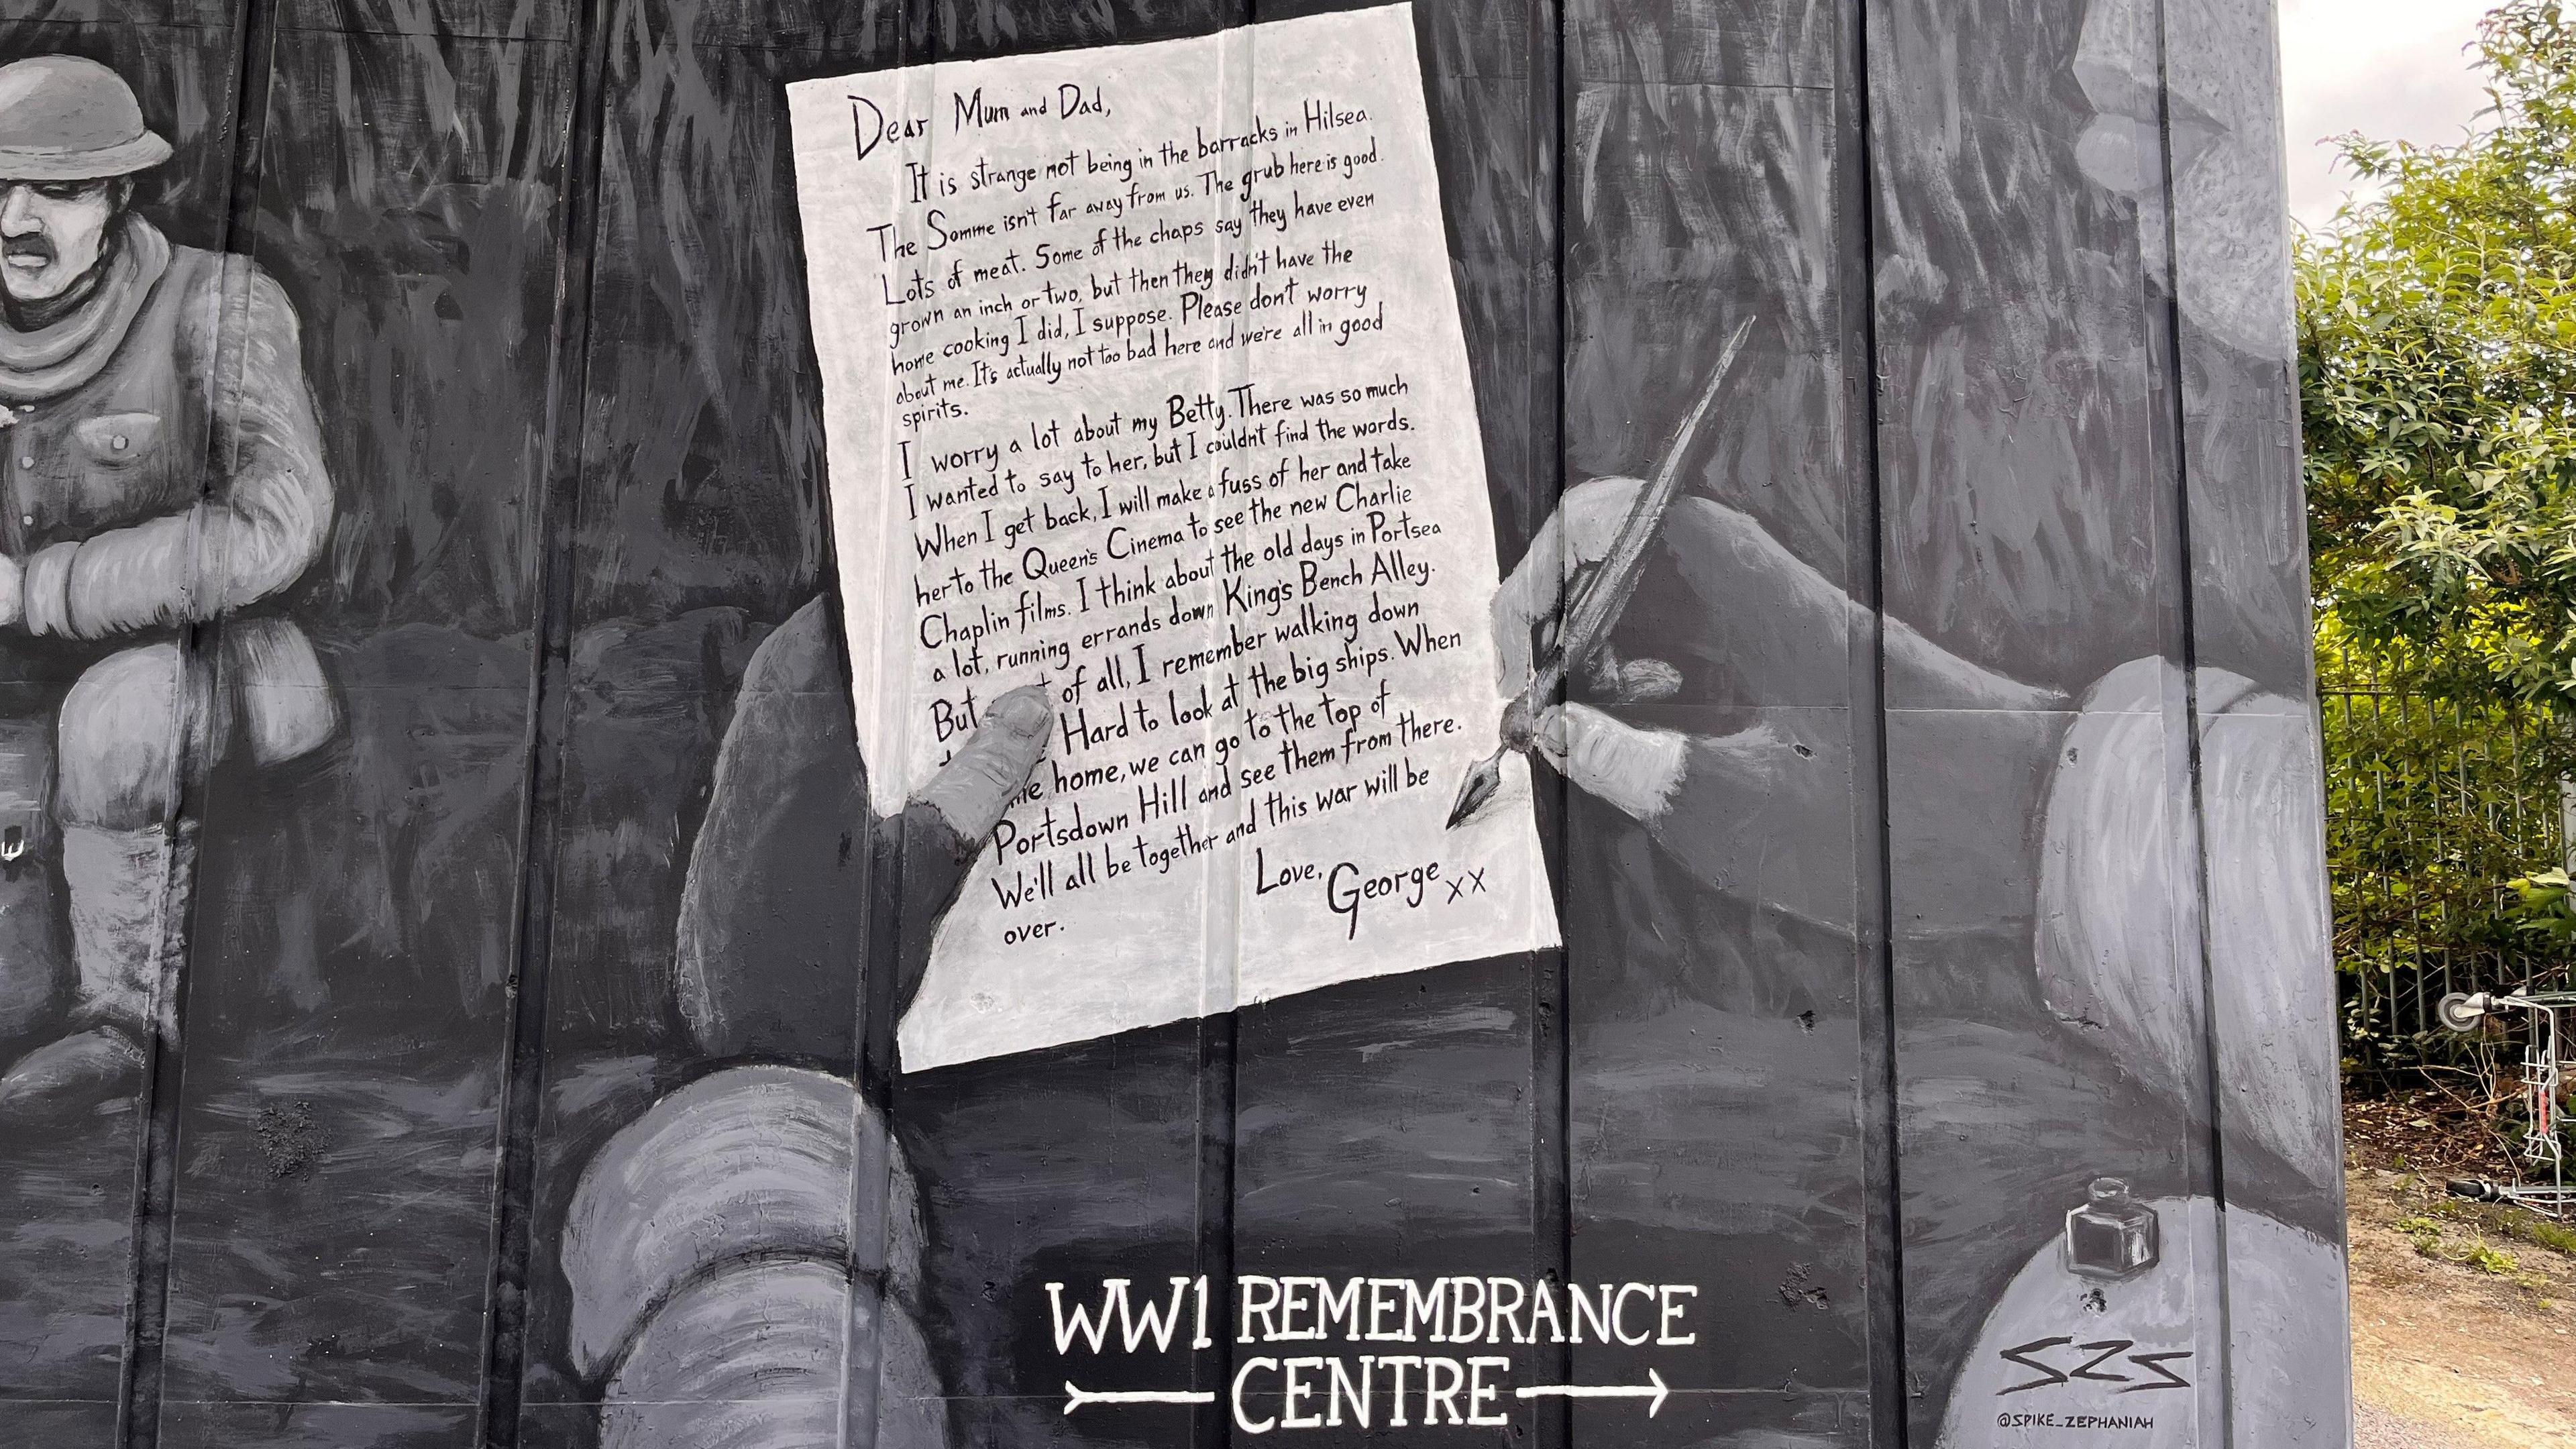 Dear Mum and Dad,
It is strange not being in the barracks in Hilsea.
The Somme isn't far away from us. The grub here is good.
Lots of meat. Some of the chaps say they have even
grown an inch or two, but then they didn't have the
home cooking I did, I suppose. Please don't worry
about me. It's actually not too bad here and we're all in good
spirits.
I worry a lot about my Betty. There was so much
I wanted to say to her, but I couldn't find the words.
When I get back, I will make a fuss of her and take
her to the Queen's Cinema to see the new Charlie
Chaplin films. I think about the old days in Portsea
a lot, running errands down King's Bench Alley.
But of all, I remember walking down
Hard to look at the big ships. When
home, we can go to the top of
Portsdown Hill and see them from there.
We'll all be together and this war will be
over.
Love,
George xx
WW1 REMEMBRANCE
CENTRE
SZS
@SPIKE_ZEPHANIAH